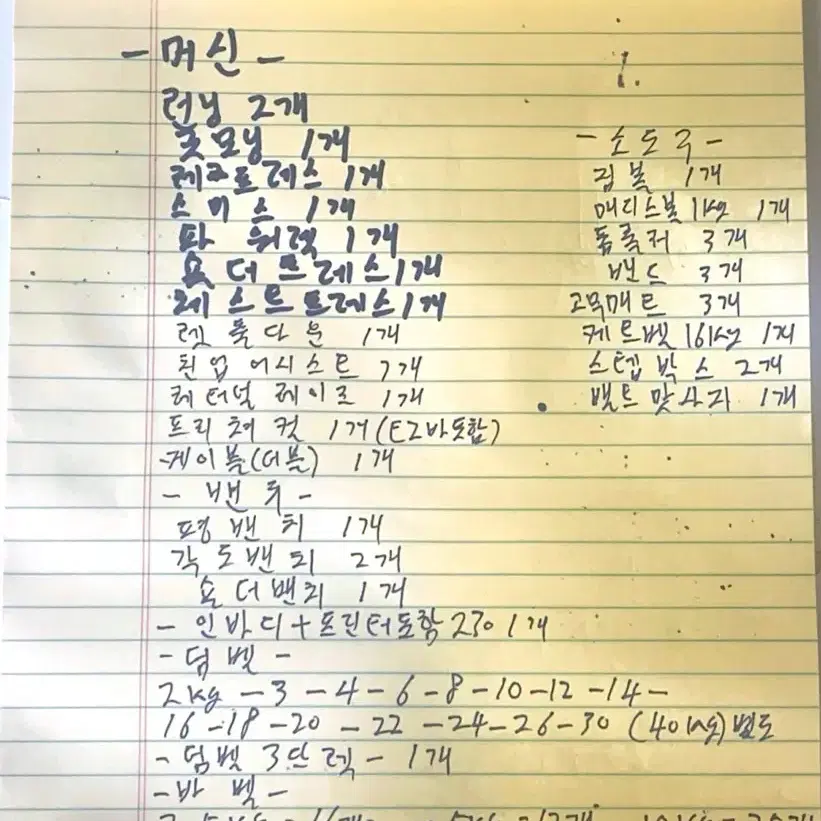 - 머신 -
1.
런닝 2개
롯모닝 1개
레그프레스 1개
스미스 1개
파워렉 1개
숄더프레스 1개
체스트프레스 1개
렛풀다운 1개
친업어시스트 1개
레터널레이즈 1개
프리쳐컷 1개 (EZ바포함)
케이블(더블) 1개
- 밴치 -
평밴치 1개
각도밴치 2개
숄더밴치 1개
- 인바디+프린터포함 230 1개
- 덤벨 -
2kg - 3 - 4 - 6 - 8 - 10 - 12 - 14 -
16 - 18 - 20 - 22 - 24 - 26 - 30 (40kg) 별도
- 덤벨 3단렉 - 1개
- 바벨 -
- 소도구 -
짐볼 1개
매디스볼 1kg 1개
폼롤러 3개
밴드 3개
고무매트 3개
케트벨 16kg 1개
스텝박스 2개
밸트맛사지 1개